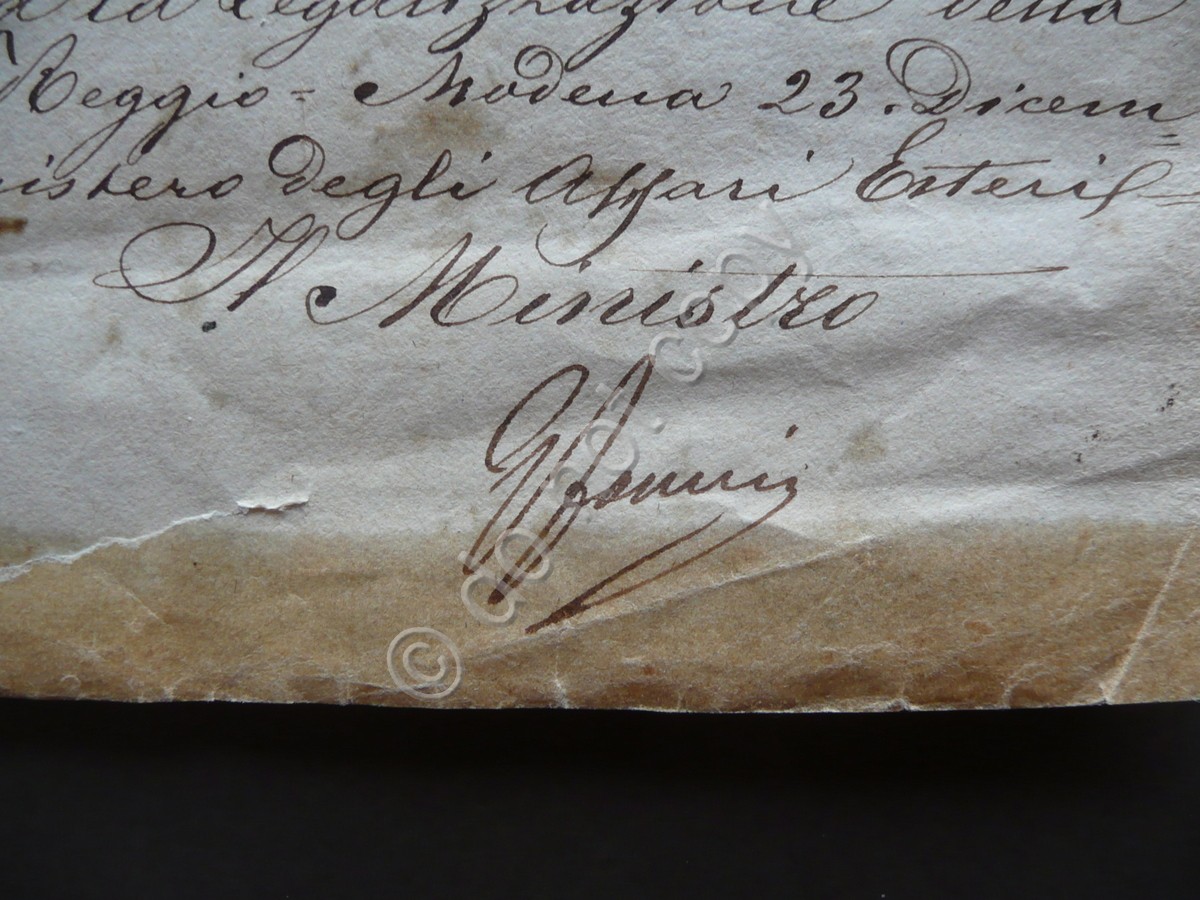 la Legalizzazione della
Reggio = Modena 23. Dicem=
nistero degli Affari Esteri =
Il Ministro
©